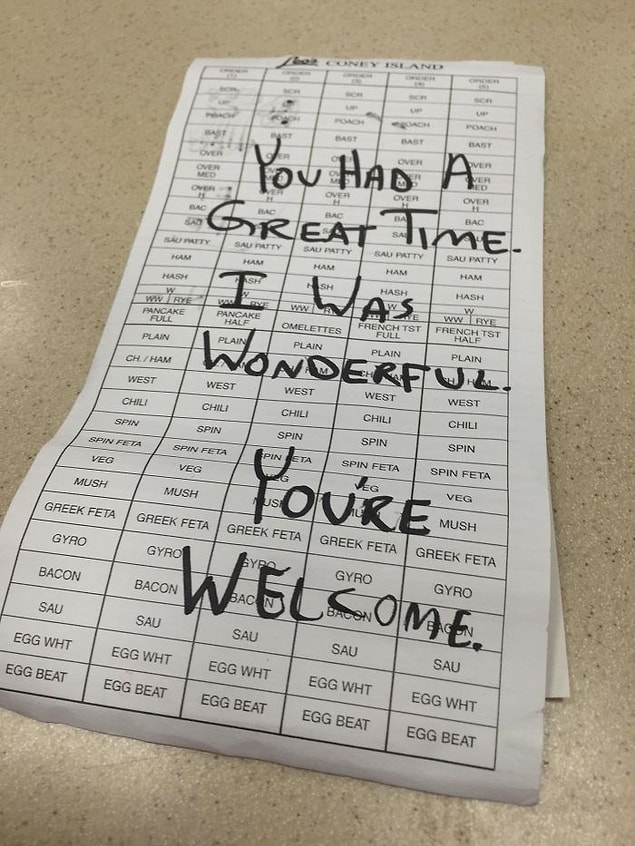 Leo's CONEY ISLAND
YOU HAD A
GREAT TIME.
I WAS
WONDERFUL.
YOU'RE
WELCOME.
ORDER ORDER ORDER ORDER ORDER
(1) (2) (3) (4) (5)
SCR SCR SCR SCR SCR
UP UP UP UP
POACH POACH POACH POACH POACH
BAST BAST BAST BAST BAST
OVER OVER OVER OVER
OVER OVER
MED MED
OVER OVER OVER OVER OVER
H H H H H
BAC BAC BAC BAC BAC
SAU
SAU PATTY SAU PATTY SAU PATTY SAU PATTY SAU PATTY
HAM HAM HAM HAM HAM
HASH HASH HASH HASH HASH
W W W
WW RYE WW RYE WW WW RYE
PANCAKE PANCAKE OMELETTES FRENCH TST FRENCH TST
FULL HALF FULL HALF
PLAIN PLAIN PLAIN PLAIN PLAIN
CH. / HAM
WEST WEST WEST WEST WEST
CHILI CHILI CHILI CHILI CHILI
SPIN SPIN SPIN SPIN SPIN
SPIN FETA SPIN FETA SPIN FETA SPIN FETA SPIN FETA
VEG VEG VEG VEG VEG
MUSH MUSH MUSH MUSH MUSH
GREEK FETA GREEK FETA GREEK FETA GREEK FETA GREEK FETA
GYRO GYRO GYRO GYRO GYRO
BACON BACON BACON BACON BACON
SAU SAU SAU SAU SAU
EGG WHT EGG WHT EGG WHT EGG WHT EGG WHT
EGG BEAT EGG BEAT EGG BEAT EGG BEAT EGG BEAT